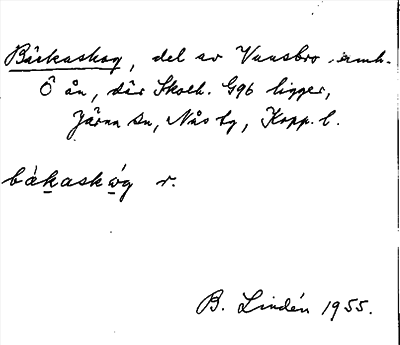 Bäckaskog, del av Vansbro samh.
Ö ån, där Skoth. G96 ligger,
Järna sn, Nås tg, Kopp. l.
bákaskóg r.
B. Lindén 1955.